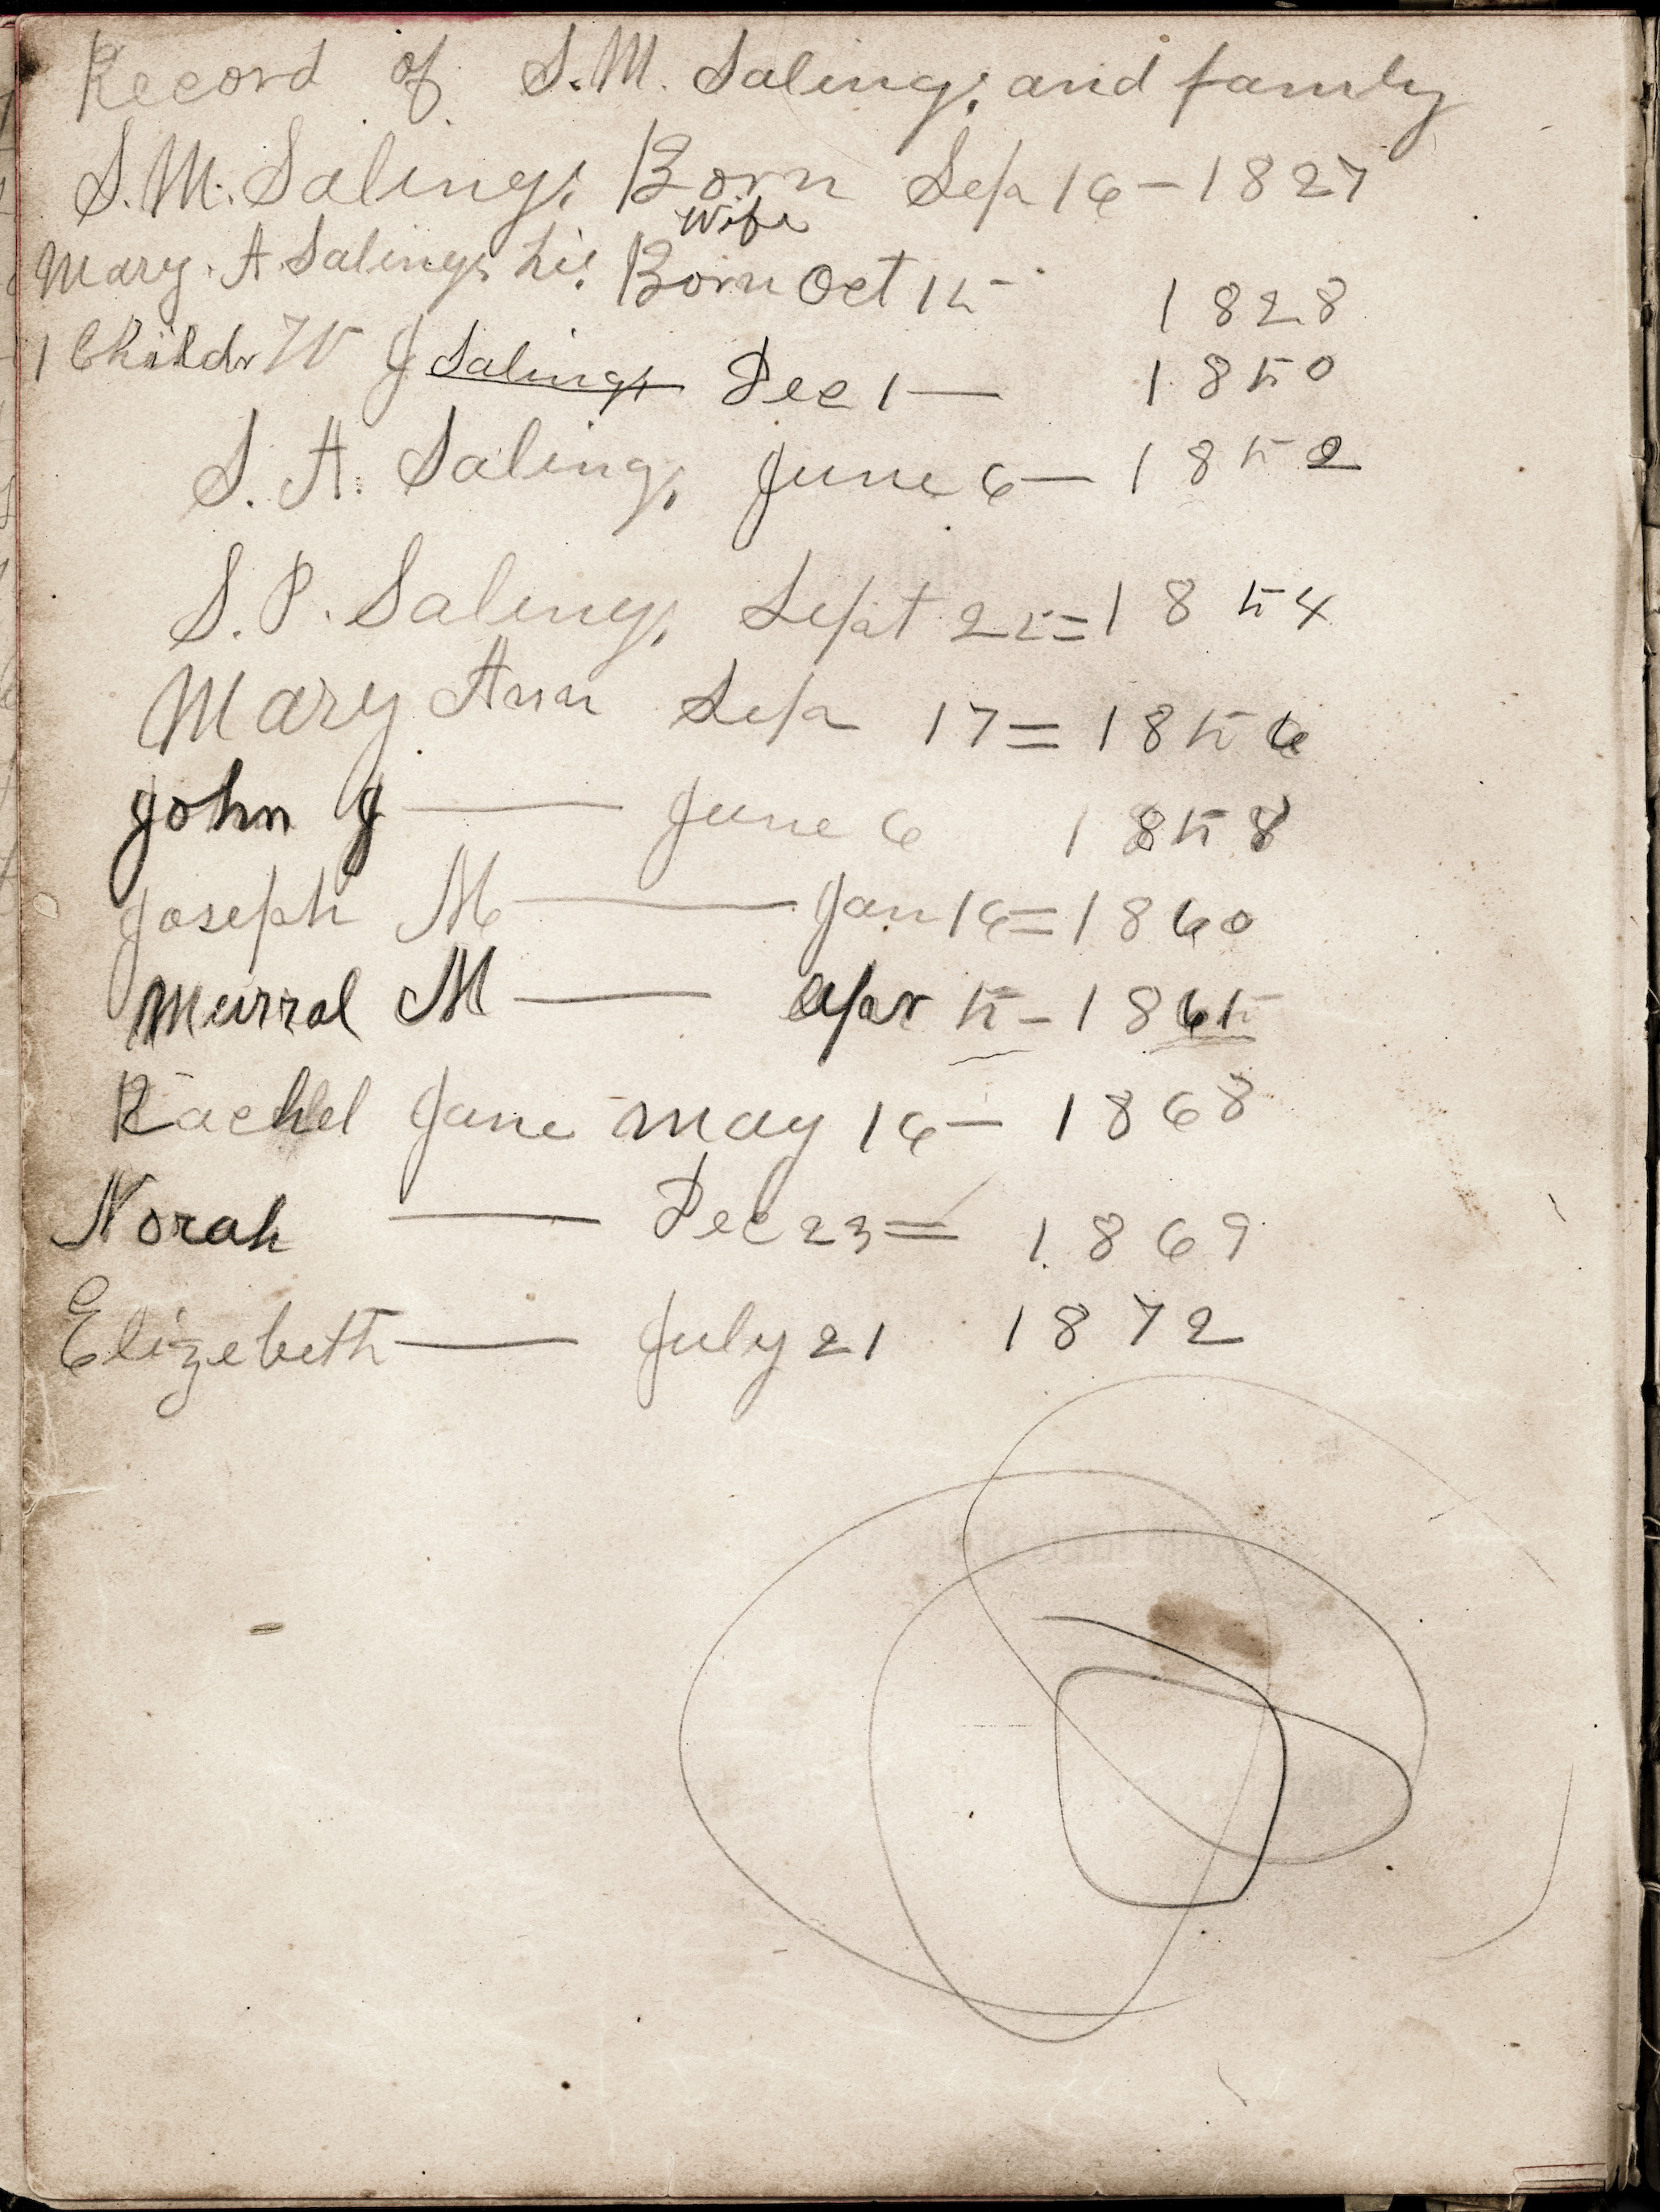 Record of S.M. Saling, and family
S.M. Saling, Born Sep 16 - 1827
Wife
Mary. A. Saling, his Born Oct 15 1828
1 Childr W J Saling, Dec 1 — 1850
S. A. Saling, June 6 — 1852
S. P. Saling, Sept 25 = 1854
Mary Ann Sep 17 = 1856
John J — June 6 1858
Joseph M — Jan 16 = 1860
Murral M — Apr 5 - 1865
Rachel Jane May 16 - 1868
Norah — Dec 23 = 1869
Elizebeth — July 21 1872